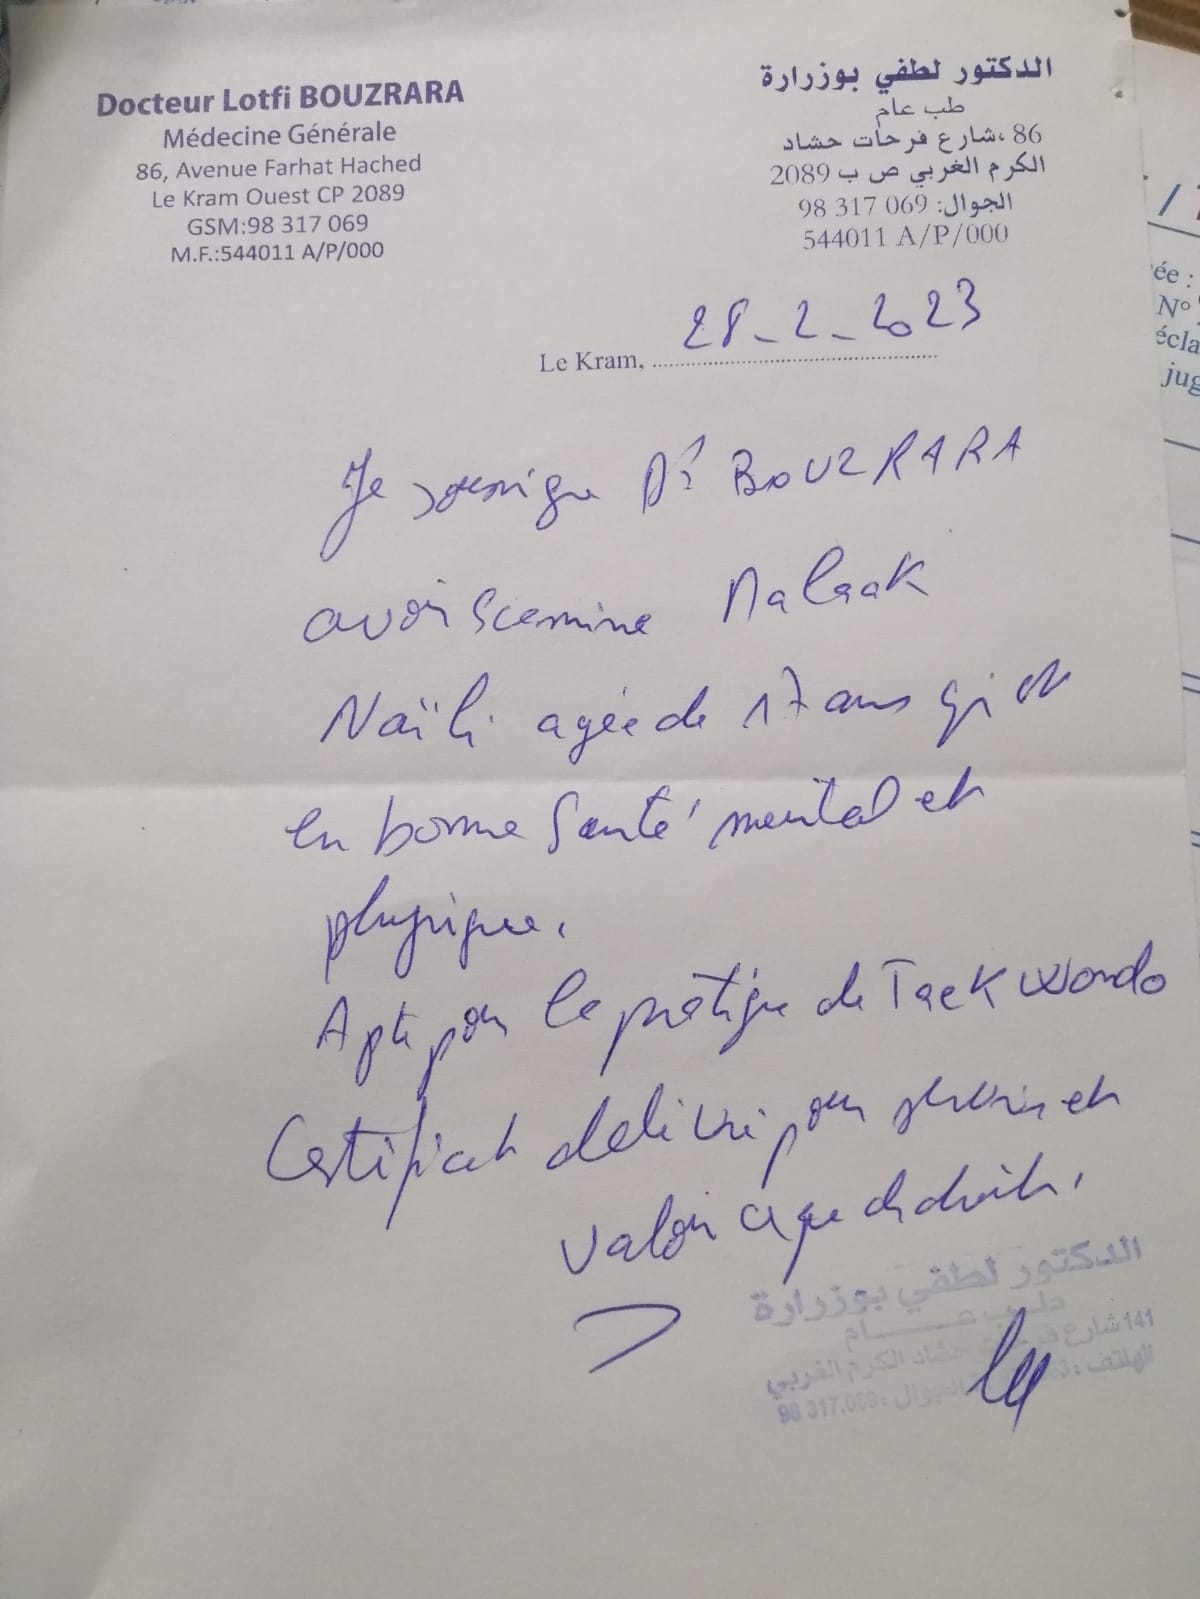 Docteur Lotfi BOUZRARA
Médecine Générale
86, Avenue Farhat Hached
Le Kram Ouest CP 2089
GSM:98 317 069
M.F.:544011 A/P/000
الدكتور لطفي بوزرارة
طب عام
86 ،شارع فرحات حشاد
الكرم الغربي ص ب 2089
الجوال: 069 317 98
544011 A/P/000
Le Kram, 28-2-2023
Je soussigné Dr BOUZRARA
avoir examiné Malaak
Naïli agée de 17 ans qi est
en bonne Santé mental et
physique.
Apte pour le pratique de Taekwondo
Certificat délivré pour servir et
valoir ce que de droit.
الدكتور لطفي بوزرارة
طب عام
141 شارع فرحات حشاد الكرم الغربي
الهاتف : الجوال : 98 317.069
ée :
N°
écla
jug